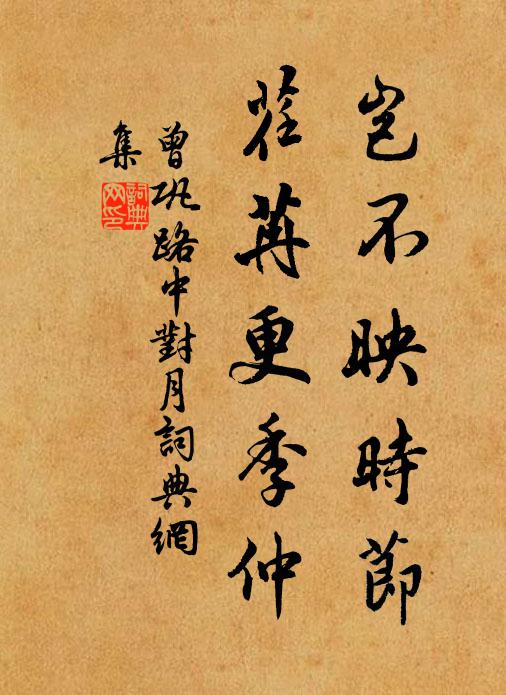 豈不映時節
荏苒更季仲
曾巩路中對月詞典網
集
詞典
网印